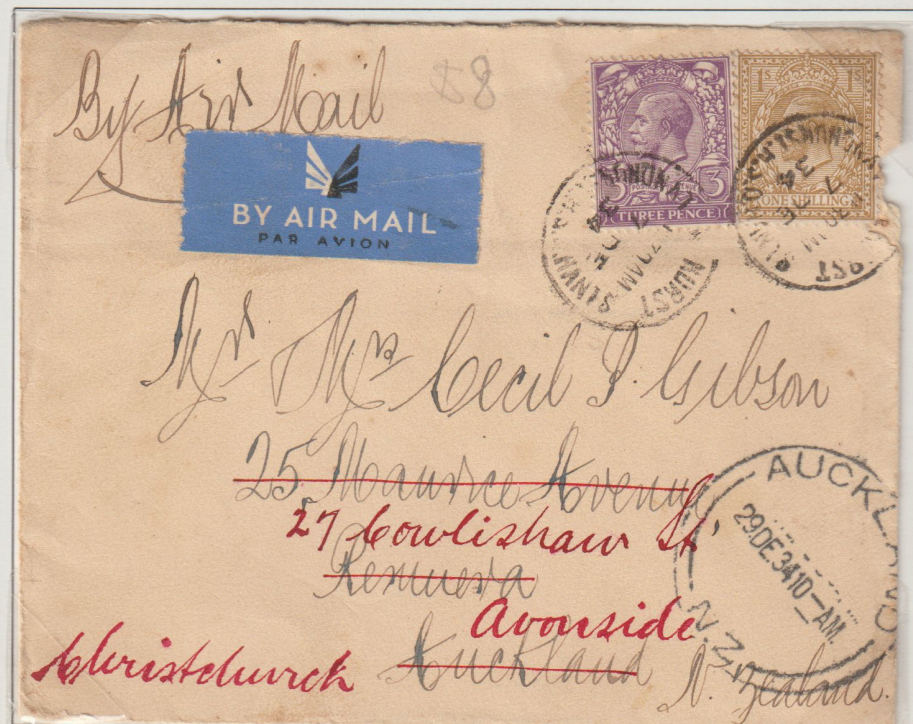 By Air Mail
$8
BY AIR MAIL
PAR AVION
3 3
THREE PENCE
1S 1S
ONE SHILLING
HURST
7 DE
34
Mr Mrs Cecil P. Gibson
25 Maurice Avenue
27 Cowlishaw St
Remuera
Avonside
Christchurch
Auckland
N. Zealand.
AUCKLAND
29DE3410-AM.
N.Z.